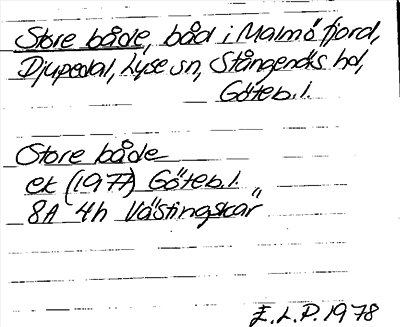 Store både, båd i Malmö fjord,
Djupedal, Lyse sn, Stångenäs hd,
Göteb.l.
Store både
ek (1977) Göteb.l.
8A 4h Västingskär"
E.L.P. 1978